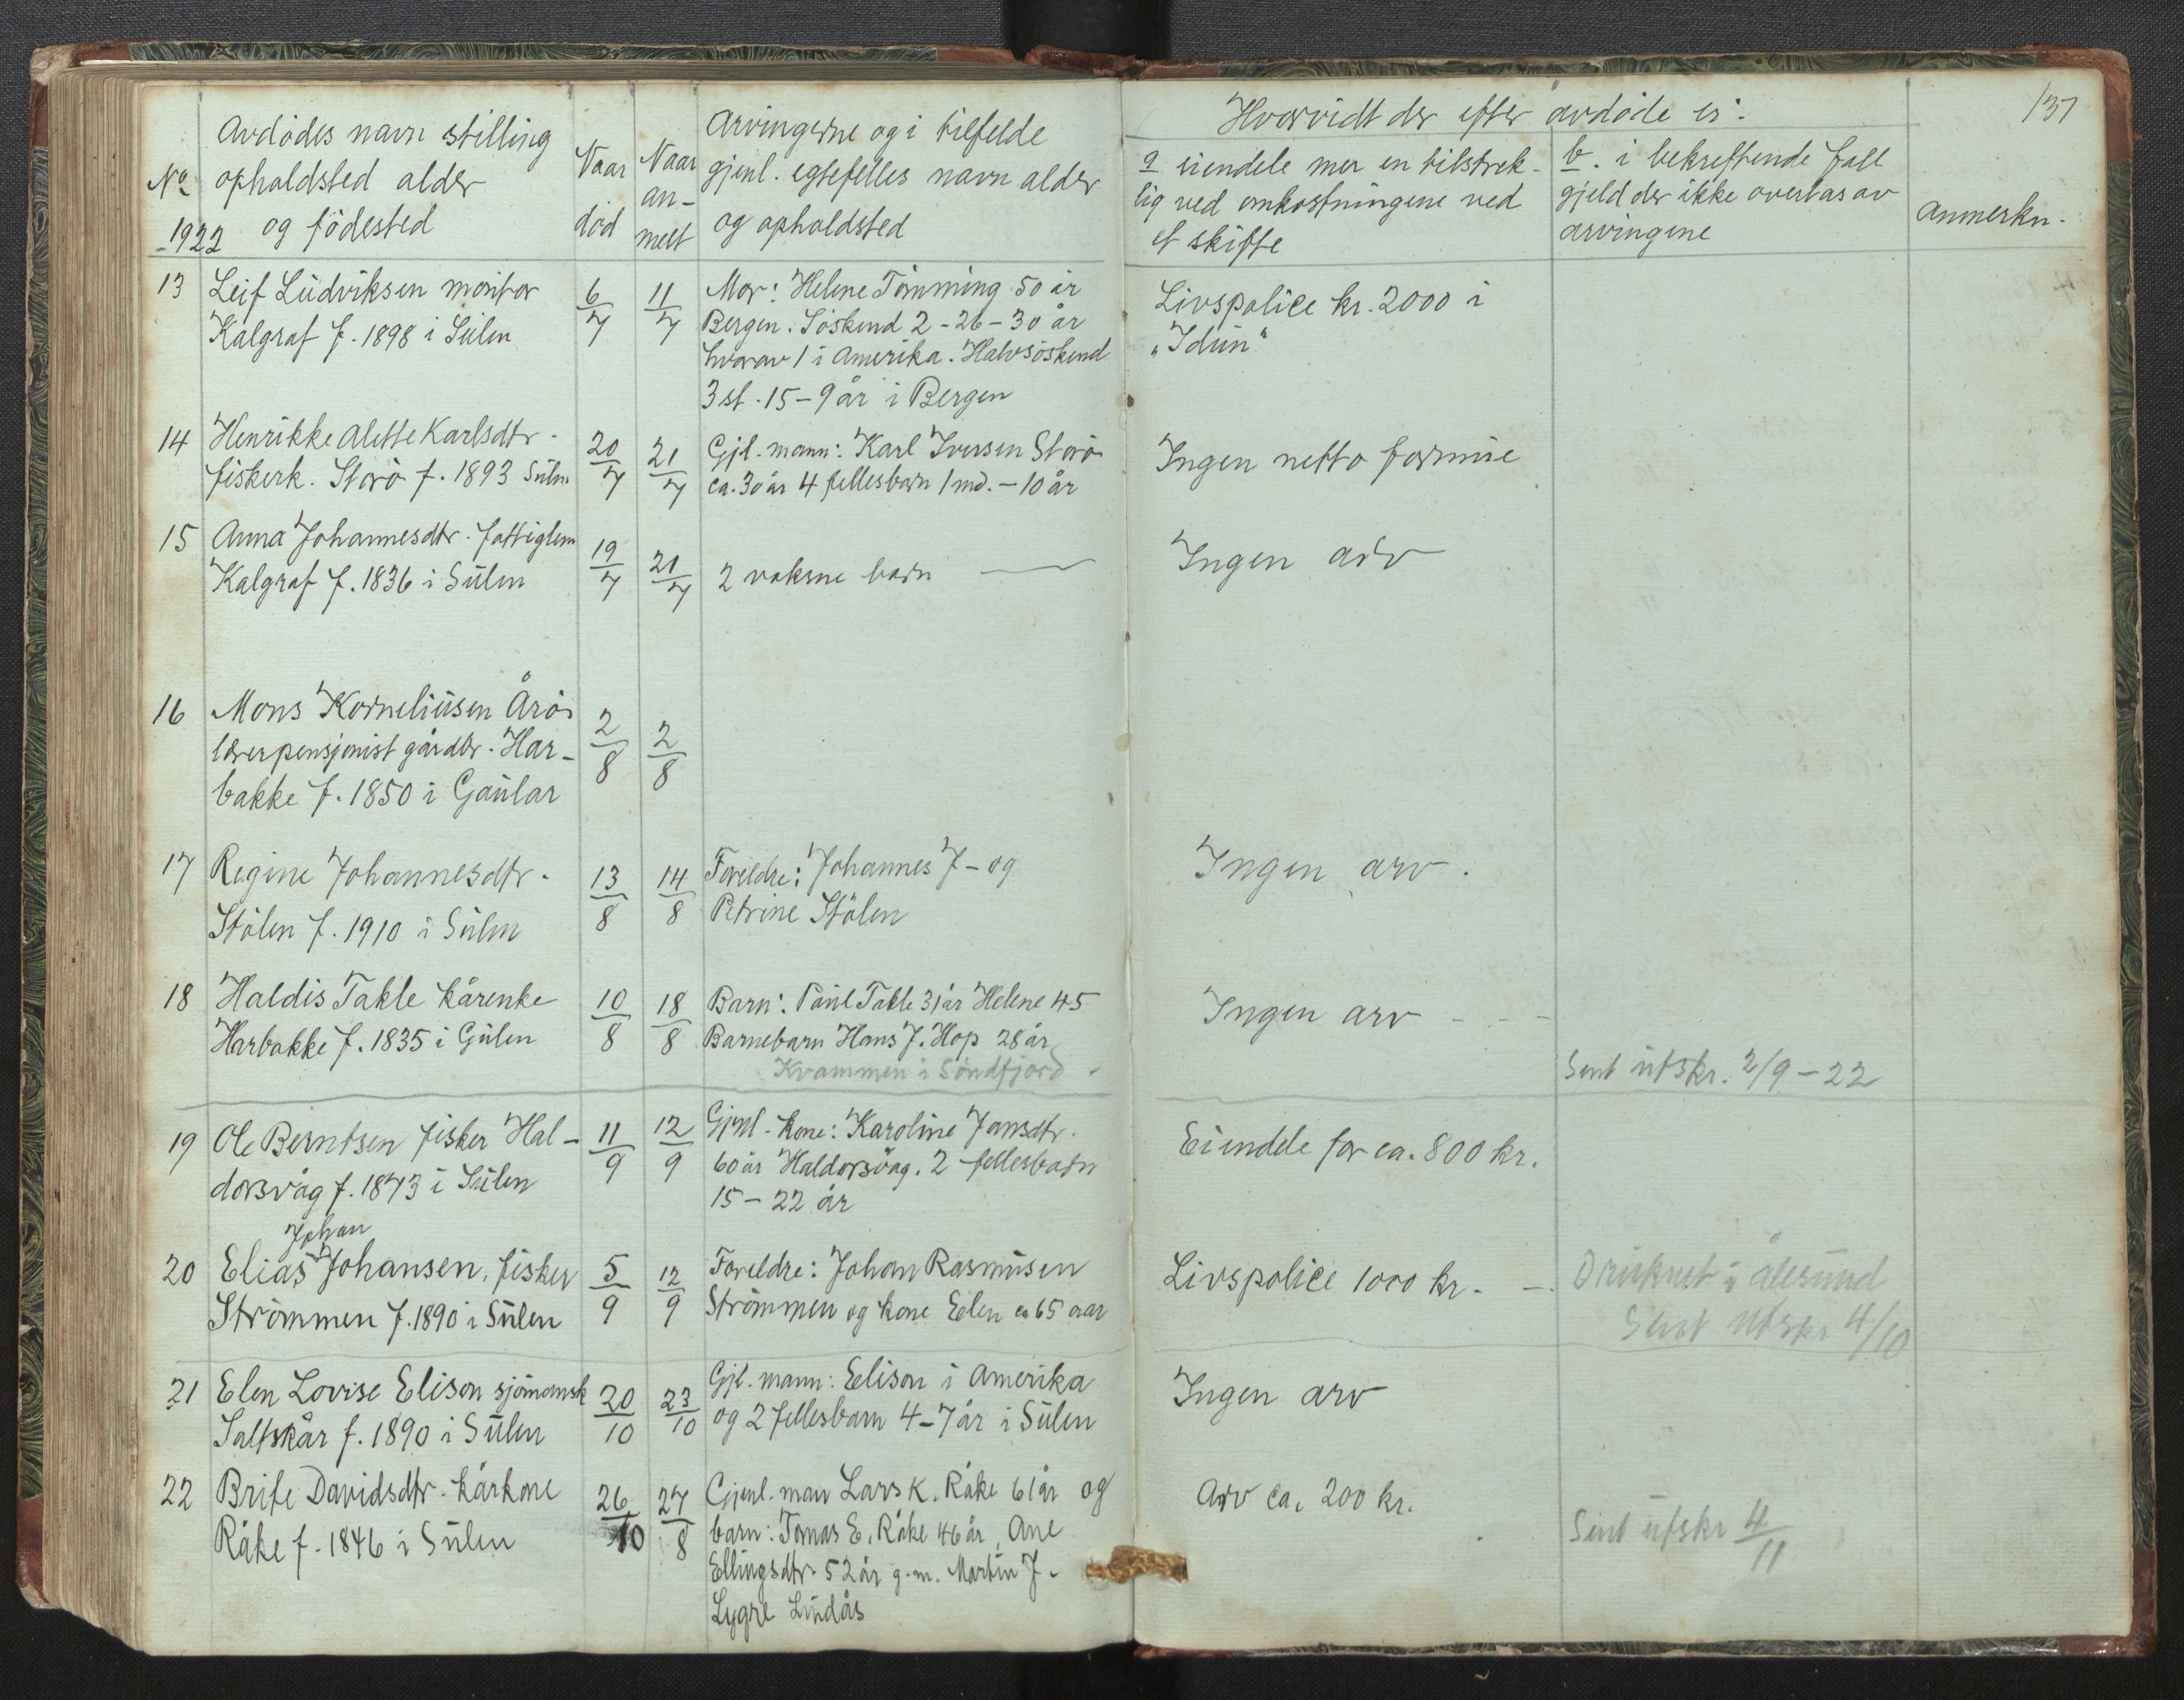 137
No
1922
Avdödes navn stilling
opholdsted alder
og födested
Naar
död
Naar
an-
melt
Arvingerne og i tilfelde
gjenl. egtefelles navn alder
og opholdsted
Hvorvidt der efter avdöde er:
a eiendele mer en tilstrek-
lig ved omkostningene ved
et skifte
b. i bekreftende fall
gjeld der ikke overtas av
arvingene
Anmerkn.
13 Leif Ludviksen montör 6/7 11/7 Mor: Helene Tömming 50 år Livspolice kr. 2000 i
Kalgraf f. 1898 i Sulen Bergen. Söskend 2 - 26 - 30 år "Idun"
hvorav 1 i Amerika. Halvsöskend
3 st. 15 - 9 år i Bergen
14 Henrikke Alette Karlsdtr. 20/7 21/7 Gjl. mann: Karl Iversen Storö Ingen netto formue
fiskerk. Storö f. 1893 Sulen ca. 30 år 4 fellesbarn 1 md. - 10 år
15 Anna Johannesdtr. fattiglem 19/7 21/7 2 voksne barn Ingen arv
Kalgraf f. 1836 i Sulen
16 Mons Korneliusen Årö 2/8 2/8
lærerpensjonist gårdbr. Har-
bakke f. 1850 i Gaular
17 Regine Johannesdtr. 13/8 14/8 Foreldre: Johannes J - og Ingen arv.
Stölen f. 1910 i Sulen Petrine Stölen
18 Haldis Takle kårenke 10/8 18/8 Barn: Paul Takle 31 år Helene 45 Ingen arv - - -
Harbakke f. 1835 i Gulen Barnebarn Hans J. Hop 28 år
Kvammen i Söndfjord - Sent utskr. 2/9 - 22
19 Ole Berntsen fisker Hal- 11/9 12/9 Gjenl. kone: Karoline Jansdtr. Eiendele for ca. 800 kr.
dorsvåg f. 1873 i Sulen 60 år Haldorsvåg. 2 fellesbarn
15 - 22 år
Johan
20 Elias Johansen, fisker 5/9 12/9 Foreldre: Johan Rasmusen Livspolice 1000 kr. - Druknet i Ålesund
Strömmen f. 1890 i Sulen Strömmen og kone Eilen ca 65 aar Sent utskr 4/10
21 Elen Lovise Elison sjömansk 20/10 23/10 Gjl. mann: Eelison i Amerika Ingen arv
Saltskår f. 1890 i Sulen og 2 fellesbarn 4 - 7 år i Sulen
22 Brite Davidsdtr. kårkone 26/10 27/8 Gjenl. man Lars K. Råke 61 år og Arv ca. 200 kr.
Råke f. 1846 i Sulen barn: Tomas E. Råke 46 år, Ane Sent utskr 4/11
Ellingsdtr. 52 år g. m. Martin J.
Lygre Lindås